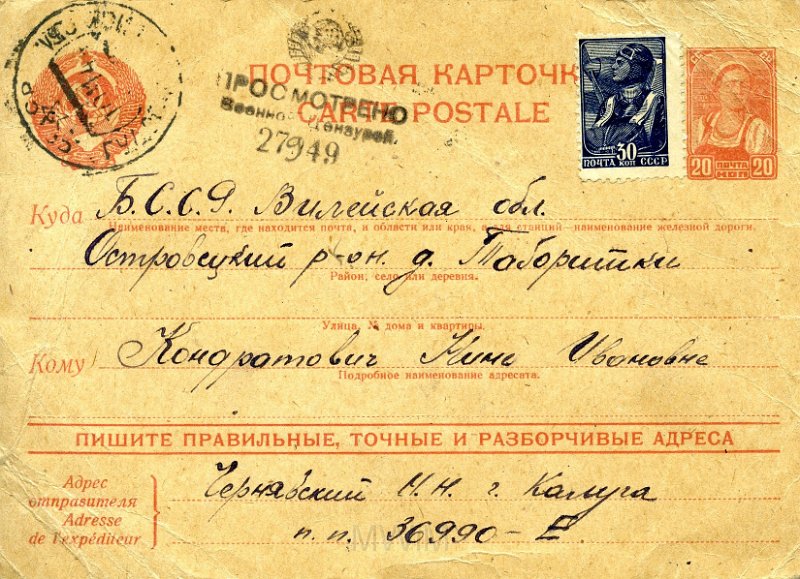 ПОЧТОВАЯ КАРТОЧК
CARTE POSTALE
ПРОСМОТРЕНО
Военной Цензурой.
27949
30
ПОЧТА КОП СССР
20 ПОЧТА 20
КОП
Куда Б.С.С.Р. Вилейская обл.
Наименование места, где находится почта, и области или края, а для станций—наименование железной дороги.
Островецкий р-он. д. Таборишки
Район, село или деревня.
Улица, № дома и квартиры.
Кому Кондратович Нине Ивановне
Подробное наименование адресата.
ПИШИТЕ ПРАВИЛЬНЫЕ, ТОЧНЫЕ И РАЗБОРЧИВЫЕ АДРЕСА
Адрес
отправителя
Adresse
de l'expéditeur
Чернявский Н.Н. г. Калуга
п.п. 36990-Е
MWIM